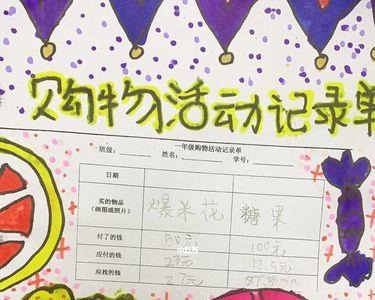 购物活动记录单
一年级购物活动记录单
班级：________ 姓名：________ 学号：________
日期
买的物品 爆米花 糖果
（画图或照片）
付了的钱 50元 100元
应付的钱 23元 12.5元
应找的钱 27元